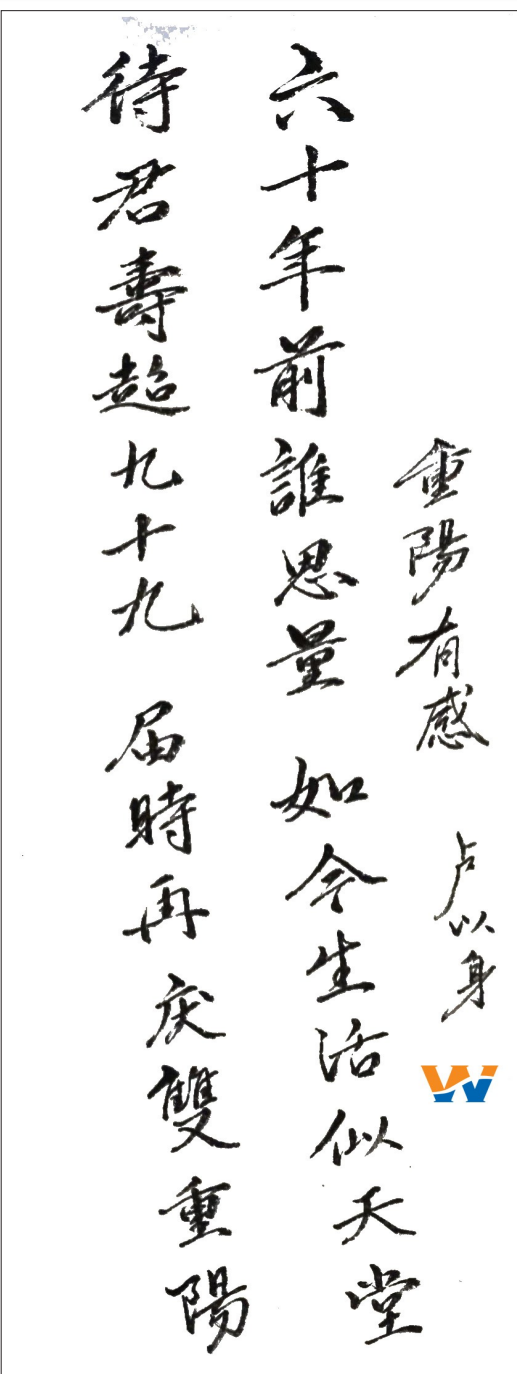 重陽有感 卢以身
六十年前誰思量 如今生活似天堂
待君壽超九十九 届時再庆雙重陽